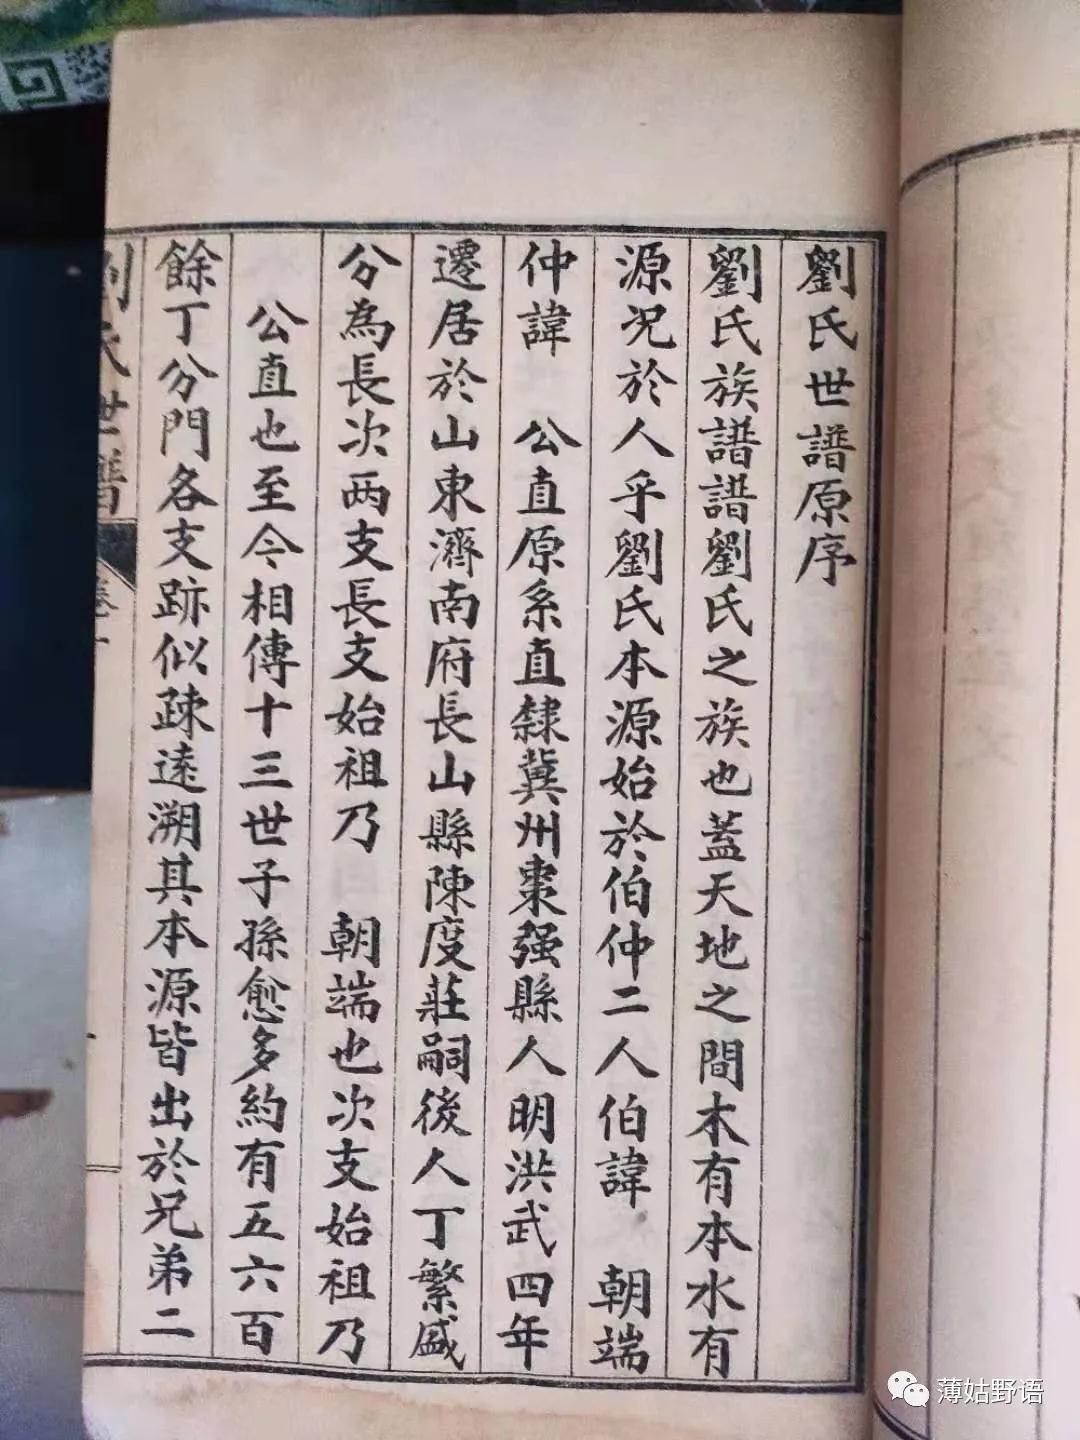 劉氏世譜原序
劉氏族譜譜劉氏之族也蓋天地之間木有本水有
源况於人乎劉氏本源始於伯仲二人伯諱　朝端
仲諱　公直原系直隸冀州棗强縣人明洪武四年
遷居於山東濟南府長山縣陳度莊嗣後人丁繁盛
分為長次两支長支始祖乃　朝端也次支始祖乃
公直也至今相傳十三世子孫愈多約有五六百
餘丁分門各支跡似疎遠溯其本源皆出於兄弟二
劉氏世譜
卷
薄姑野语